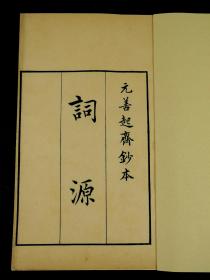 元善起齋鈔本
詞源